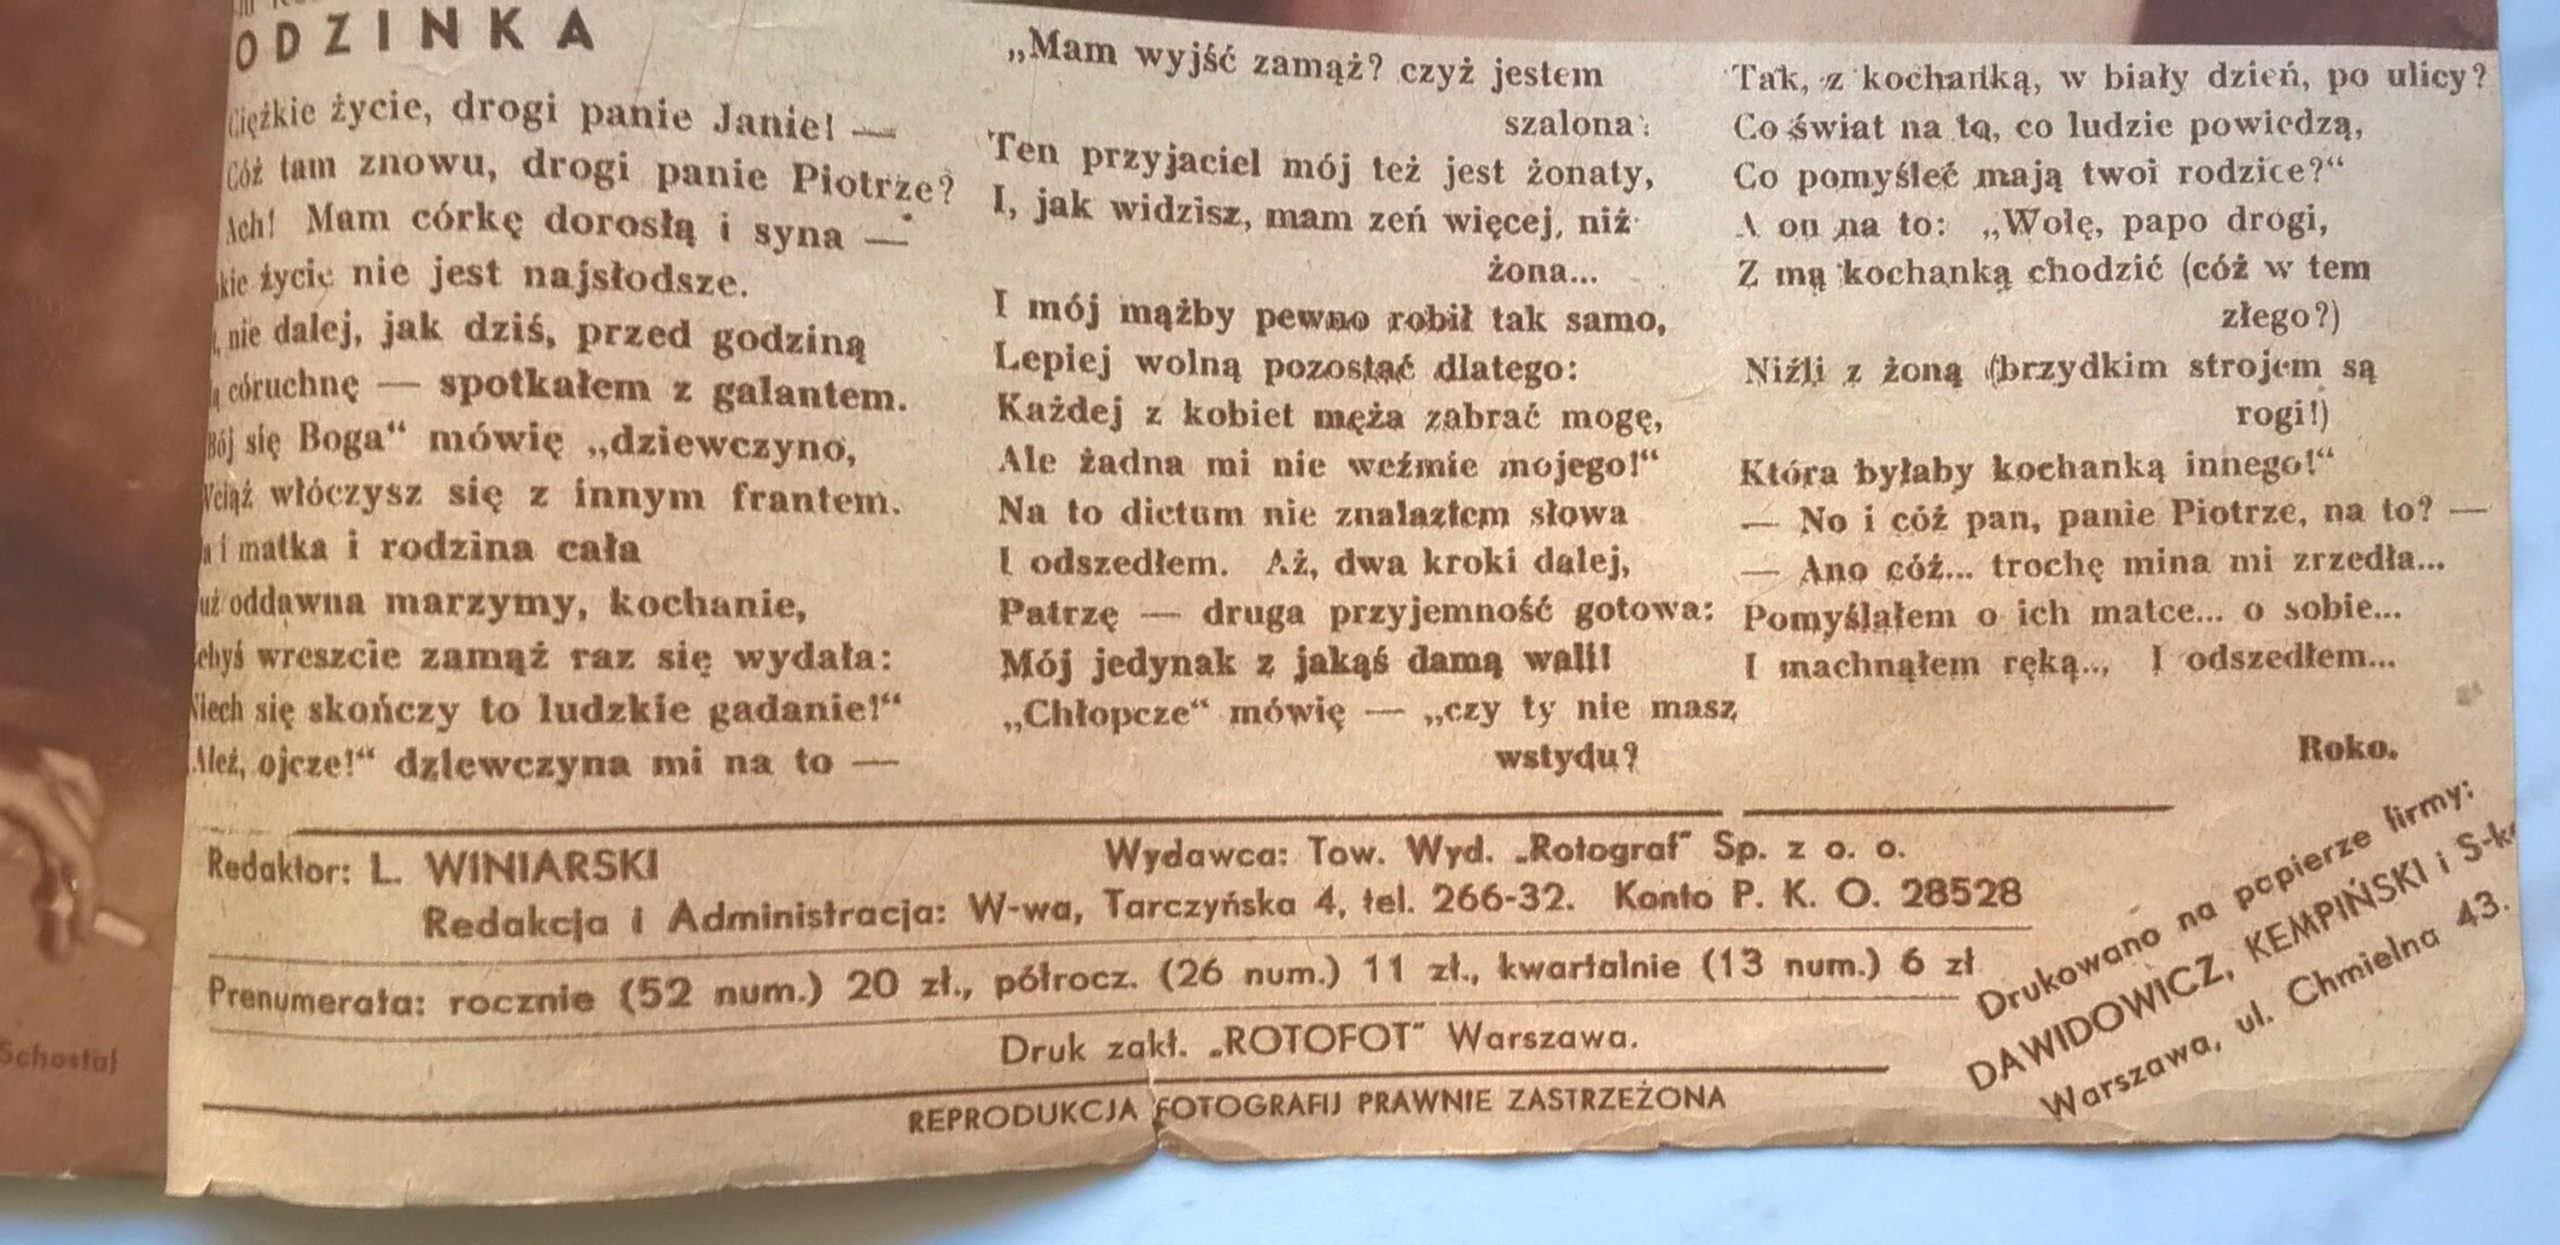 ODZINKA
Ciężkie życie, drogi panie Janie! —
Cóż tam znowu, drogi panie Piotrze?
Ach! Mam córkę dorosłą i syna —
kie życie nie jest najsłodsze.
nie dalej, jak dziś, przed godziną
córuchnę — spotkałem z galantem.
Bój się Boga“ mówię „dziewczyno,
Wciąż włóczysz się z innym frantem.
a i matka i rodzina cała
uż oddawna marzymy, kochanie,
ebyś wreszcie zamąż raz się wydała:
Niech się skończy to ludzkie gadanie!“
Ależ, ojcze!“ dziewczyna mi na to —
„Mam wyjść zamąż? czyż jestem
szalona:
Ten przyjaciel mój też jest żonaty,
I, jak widzisz, mam zeń więcej, niż
żona...
I mój mążby pewno robił tak samo,
Lepiej wolną pozostać dlatego:
Każdej z kobiet męża zabrać mogę,
Ale żadna mi nie weźmie mojego!“
Na to dictum nie znalazłem słowa
I odszedłem. Aż, dwa kroki dalej,
Patrzę — druga przyjemność gotowa:
Mój jedynak z jakąś damą wali!
„Chłopcze“ mówię — „czy ty nie masz
wstydu?
Tak, z kochanką, w biały dzień, po ulicy?
Co świat na to, co ludzie powiedzą,
Co pomyśleć mają twoi rodzice?“
A on na to: „Wolę, papo drogi,
Z mą kochanką chodzić (cóż w tem
złego?)
Niźli z żoną (brzydkim strojem są
rogi!)
Która byłaby kochanką innego!“
— No i cóż pan, panie Piotrze, na to? —
— Ano cóż... trochę mina mi zrzedła...
Pomyślałem o ich matce... o sobie...
I machnąłem ręką.., I odszedłem...
Roko.
Redaktor: L. WINIARSKI
Wydawca: Tow. Wyd. „Rotograf" Sp. z o. o.
Redakcja i Administracja: W-wa, Tarczyńska 4, tel. 266-32. Konto P. K. O. 28528
Prenumerata: rocznie (52 num.) 20 zł., półrocz. (26 num.) 11 zł., kwartalnie (13 num.) 6 zł
Druk zakł. „ROTOFOT" Warszawa.
REPRODUKCJA FOTOGRAFIJ PRAWNIE ZASTRZEŻONA
Drukowano na papierze firmy:
DAWIDOWICZ, KEMPIŃSKI i S-k
Warszawa, ul. Chmielna 43.
Schostal